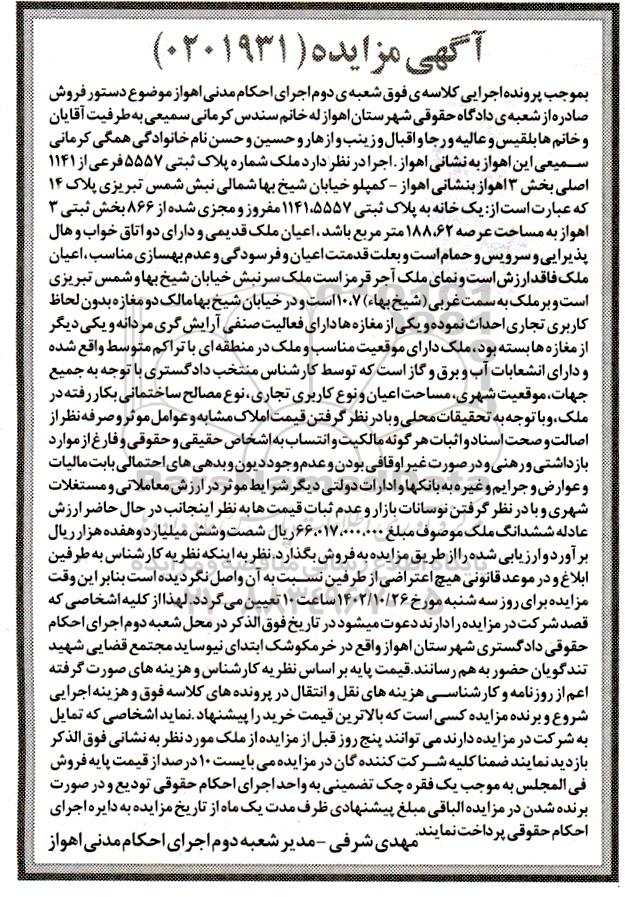 آگهی مزایده (۰۲۰۱۹۳۱)
بموجب پرونده اجرایی کلاسه ی فوق شعبه ی دوم اجرای احکام مدنی اهواز موضوع دستور فروش
صادره از شعبه ی دادگاه حقوقی شهرستان اهواز له خانم سندس کرمانی سمیعی به طرفیت آقایان
و خانم ها بلقیس و عالیه و رجا و اقبال و زینب و ازهار و حسین و حسن نام خانوادگی همگی کرمانی
سمیعی این اهواز به نشانی اهواز . اجرا در نظر دارد ملک شماره پلاک ثبتی ۵۵۵۷ فرعی از ۱۱۴۱
اصلی بخش ۳ اهواز بنشانی اهواز - کمپلو خیابان شیخ بها شمالی نبش شمس تبریزی پلاک ۱۴
که عبارت است از: یک خانه به پلاک ثبتی ۱۱۴۱،۵۵۵۷ مفروز و مجزی شده از ۸۶۶ بخش ثبتی ۳
اهواز به مساحت عرصه ۱۸۸،۶۲ متر مربع باشد ، اعیان ملک قدیمی و دارای دو اتاق خواب و هال
پذیرایی و سرویس و حمام است و بعلت قدمت اعیان و فرسودگی و عدم بهسازی مناسب ، اعیان
ملک فاقد ارزش است و نمای ملک آجر قرمز است ملک سر نبش خیابان شیخ بها و شمس تبریزی
است و بر ملک به سمت غربی (شیخ بهاء) ۱۰،۷ است و در خیابان شیخ بها مالک دو مغازه بدون لحاظ
کاربری تجاری احداث نموده و یکی از مغازه ها دارای فعالیت صنفی آرایش گری مردانه و یکی دیگر
از مغازه ها بسته بود ، ملک دارای موقعیت مناسب و ملک در منطقه ای با تراکم متوسط واقع شده
و دارای انشعابات آب و برق و گاز است که توسط کارشناس منتخب دادگستری با توجه به جمیع
جهات، موقعیت شهری، مساحت اعیان و نوع کاربری تجاری ، نوع مصالح ساختمانی بکار رفته در
ملک ، و با توجه به تحقیقات محلی و با در نظر گرفتن قیمت املاک مشابه و عوامل موثر و صرفه نظر از
اصالت و صحت اسناد و اثبات هر گونه مالکیت و انتساب به اشخاص حقیقی و حقوقی و فارغ از موارد
بازداشتی و رهنی و در صورت غیر اوقافی بودن و عدم وجود دیون و بدهی های احتمالی بابت مالیات
و عوارض و جرایم و غیره به بانکها و ادارات دولتی دیگر شرایط موثر در ارزش معاملاتی و مستغلات
شهری و با در نظر گرفتن نوسانات بازار و عدم ثبات قیمت ها به نظر اینجانب در حال حاضر ارزش
عادله ششدانگ ملک موصوف مبلغ ۶۶,۰۱۷,۰۰۰,۰۰۰ ریال شصت و شش میلیارد و هفده هزار ریال
بر آورد و ارزیابی شده را از طریق مزایده به فروش بگذارد. نظر به اینکه نظریه کارشناس به طرفین
ابلاغ و در موعد قانونی هیچ اعتراضی از طرفین نسبت به آن واصل نگردیده است بنابر این وقت
مزایده برای روز سه شنبه مورخ ۱۴۰۲/۱۰/۲۶ ساعت ۱۰ تعیین می گردد لهذا از کلیه اشخاصی که
قصد شرکت در مزایده را دارند دعوت میشود در تاریخ فوق الذکر در محل شعبه دوم اجرای احکام
حقوقی دادگستری شهرستان اهواز واقع در خرمکوشک ابتدای نیوساید مجتمع قضایی شهید
تندگویان حضور به هم رسانند. قیمت پایه بر اساس نظریه کارشناس و هزینه های صورت گرفته
اعم از روزنامه و کارشناسی هزینه های نقل و انتقال در پرونده های کلاسه فوق و هزینه اجرایی
شروع و برنده مزایده کسی است که بالاترین قیمت خرید را پیشنهاد .نماید اشخاصی که تمایل
به شرکت در مزایده دارند می توانند پنج روز قبل از مزایده از ملک مورد نظر به نشانی فوق الذکر
بازدید نمایند ضمنا کلیه شرکت کننده گان در مزایده می بایست ۱۰ درصد از قیمت پایه فروش
فی المجلس به موجب یک فقره چک تضمینی به واحد اجرای احکام حقوقی تودیع و در صورت
برنده شدن در مزایده الباقی مبلغ پیشنهادی ظرف مدت یک ماه از تاریخ مزایده به دایره اجرای
احکام حقوقی پرداخت نمایند.
مهدی شرفی - مدیر شعبه دوم اجرای احکام مدنی اهواز